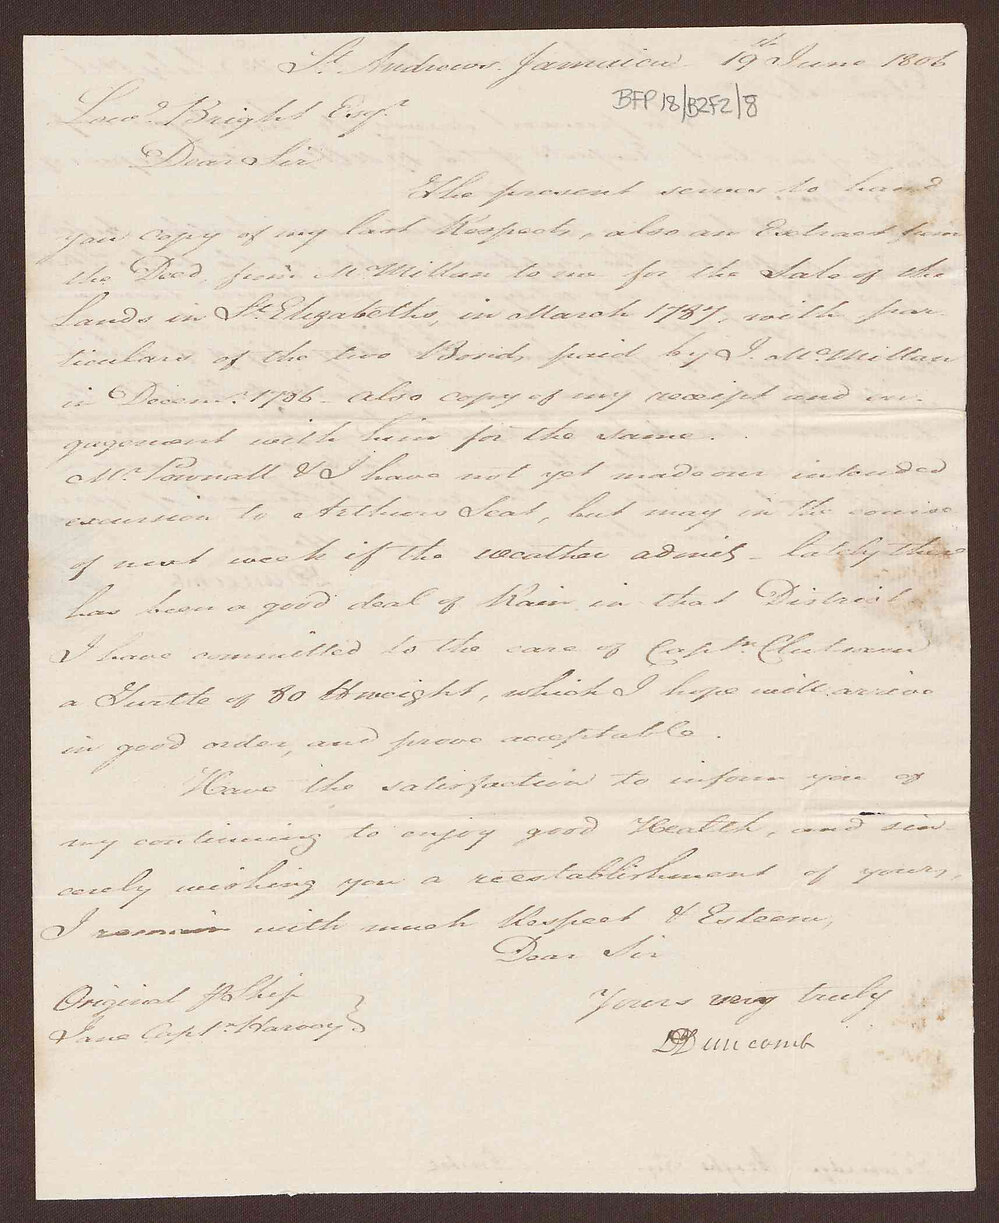 St. Andrews Jamaica 19th June 1806
BFP 18/B2F2/8
Lowd. Bright Esqr.
Dear Sir
The present serves to hand
you copy of my last Respects, also an Extract from
the Deed, from McMillan to me for the Sale of the
Lands in St. Elizabeths, in March 1787, with par
ticulars of the two Bonds paid by J. McMillan
in Decemr. 1786 - also copy of my receipt and en-
gagement with him for the same.
Mr. Pownall & I have not yet made our intended
excursion to Arthurs Seat, but may in the course
of next week if the weather admit - lately there
has been a good deal of Rain in that District
I have committed to the care of Captn.
a Turtle of 80 lb weight, which I hope will arrive
in good order, and prove acceptable.
Have the satisfaction to inform you of
my continuing to enjoy good Health, and sin-
cerely wishing you a reestablishment of yours,
I remain with much Respect & Esteem,
Dear Sir
Original Ship
Yours very truly
Jane Captn Harvey
Duncomb